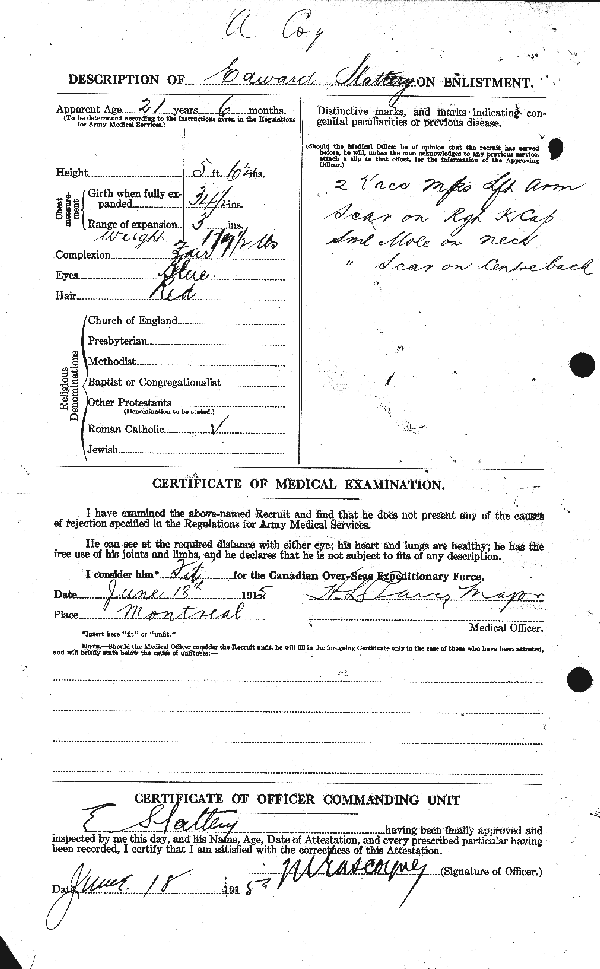 A Coy
DESCRIPTION OF Edward Slattery ON ENLISTMENT.
Apparent Age 21 years 6 months.
(To be determined according to the instructions given in the Regulations for Army Medical Services.)
Height 5 ft. ins.
Chest measurement
Girth when fully expanded ins.
Range of expansion 3 ins.
Weight lbs
Complexion Fair
Eyes Blue
Hair Red
Religious Denominations
Church of England
Presbyterian
Methodist
Baptist or Congregationalist
Other Protestants
(Denomination to be stated.)
Roman Catholic √
Jewish
Distinctive marks, and marks indicating congenital peculiarities or previous disease.
(Should the Medical Officer be of opinion that the recruit has served before, he will, unless the man acknowledges to any previous service, attach a slip to that effect, for the information of the Approving Officer.)
2 Vacc Mks Lft Arm
Scar on Rgh K Cap
Sml Mole on neck
" Scar on Centre back
CERTIFICATE OF MEDICAL EXAMINATION.
I have examined the above-named Recruit and find that he does not present any of the causes
of rejection specified in the Regulations for Army Medical Services.
He can see at the required distance with either eye; his heart and lungs are healthy; he has the
free use of his joints and limbs, and he declares that he is not subject to fits of any description.
I consider him* Fit for the Canadian Over-Seas Expeditionary Force.
Date June 1915
Place Montreal
Major
Medical Officer.
*Insert here "fit" or "unfit."
NOTE.—Should the Medical Officer consider the Recruit unfit, he will fill in the foregoing Certificate only in the case of those who have been attested,
and will briefly state below the cause of unfitness:—
CERTIFICATE OF OFFICER COMMANDING UNIT
E Slattery having been finally approved and
inspected by me this day, and his Name, Age, Date of Attestation, and every prescribed particular having
been recorded, I certify that I am satisfied with the correctness of this Attestation.
(Signature of Officer.)
Date June 18 1915